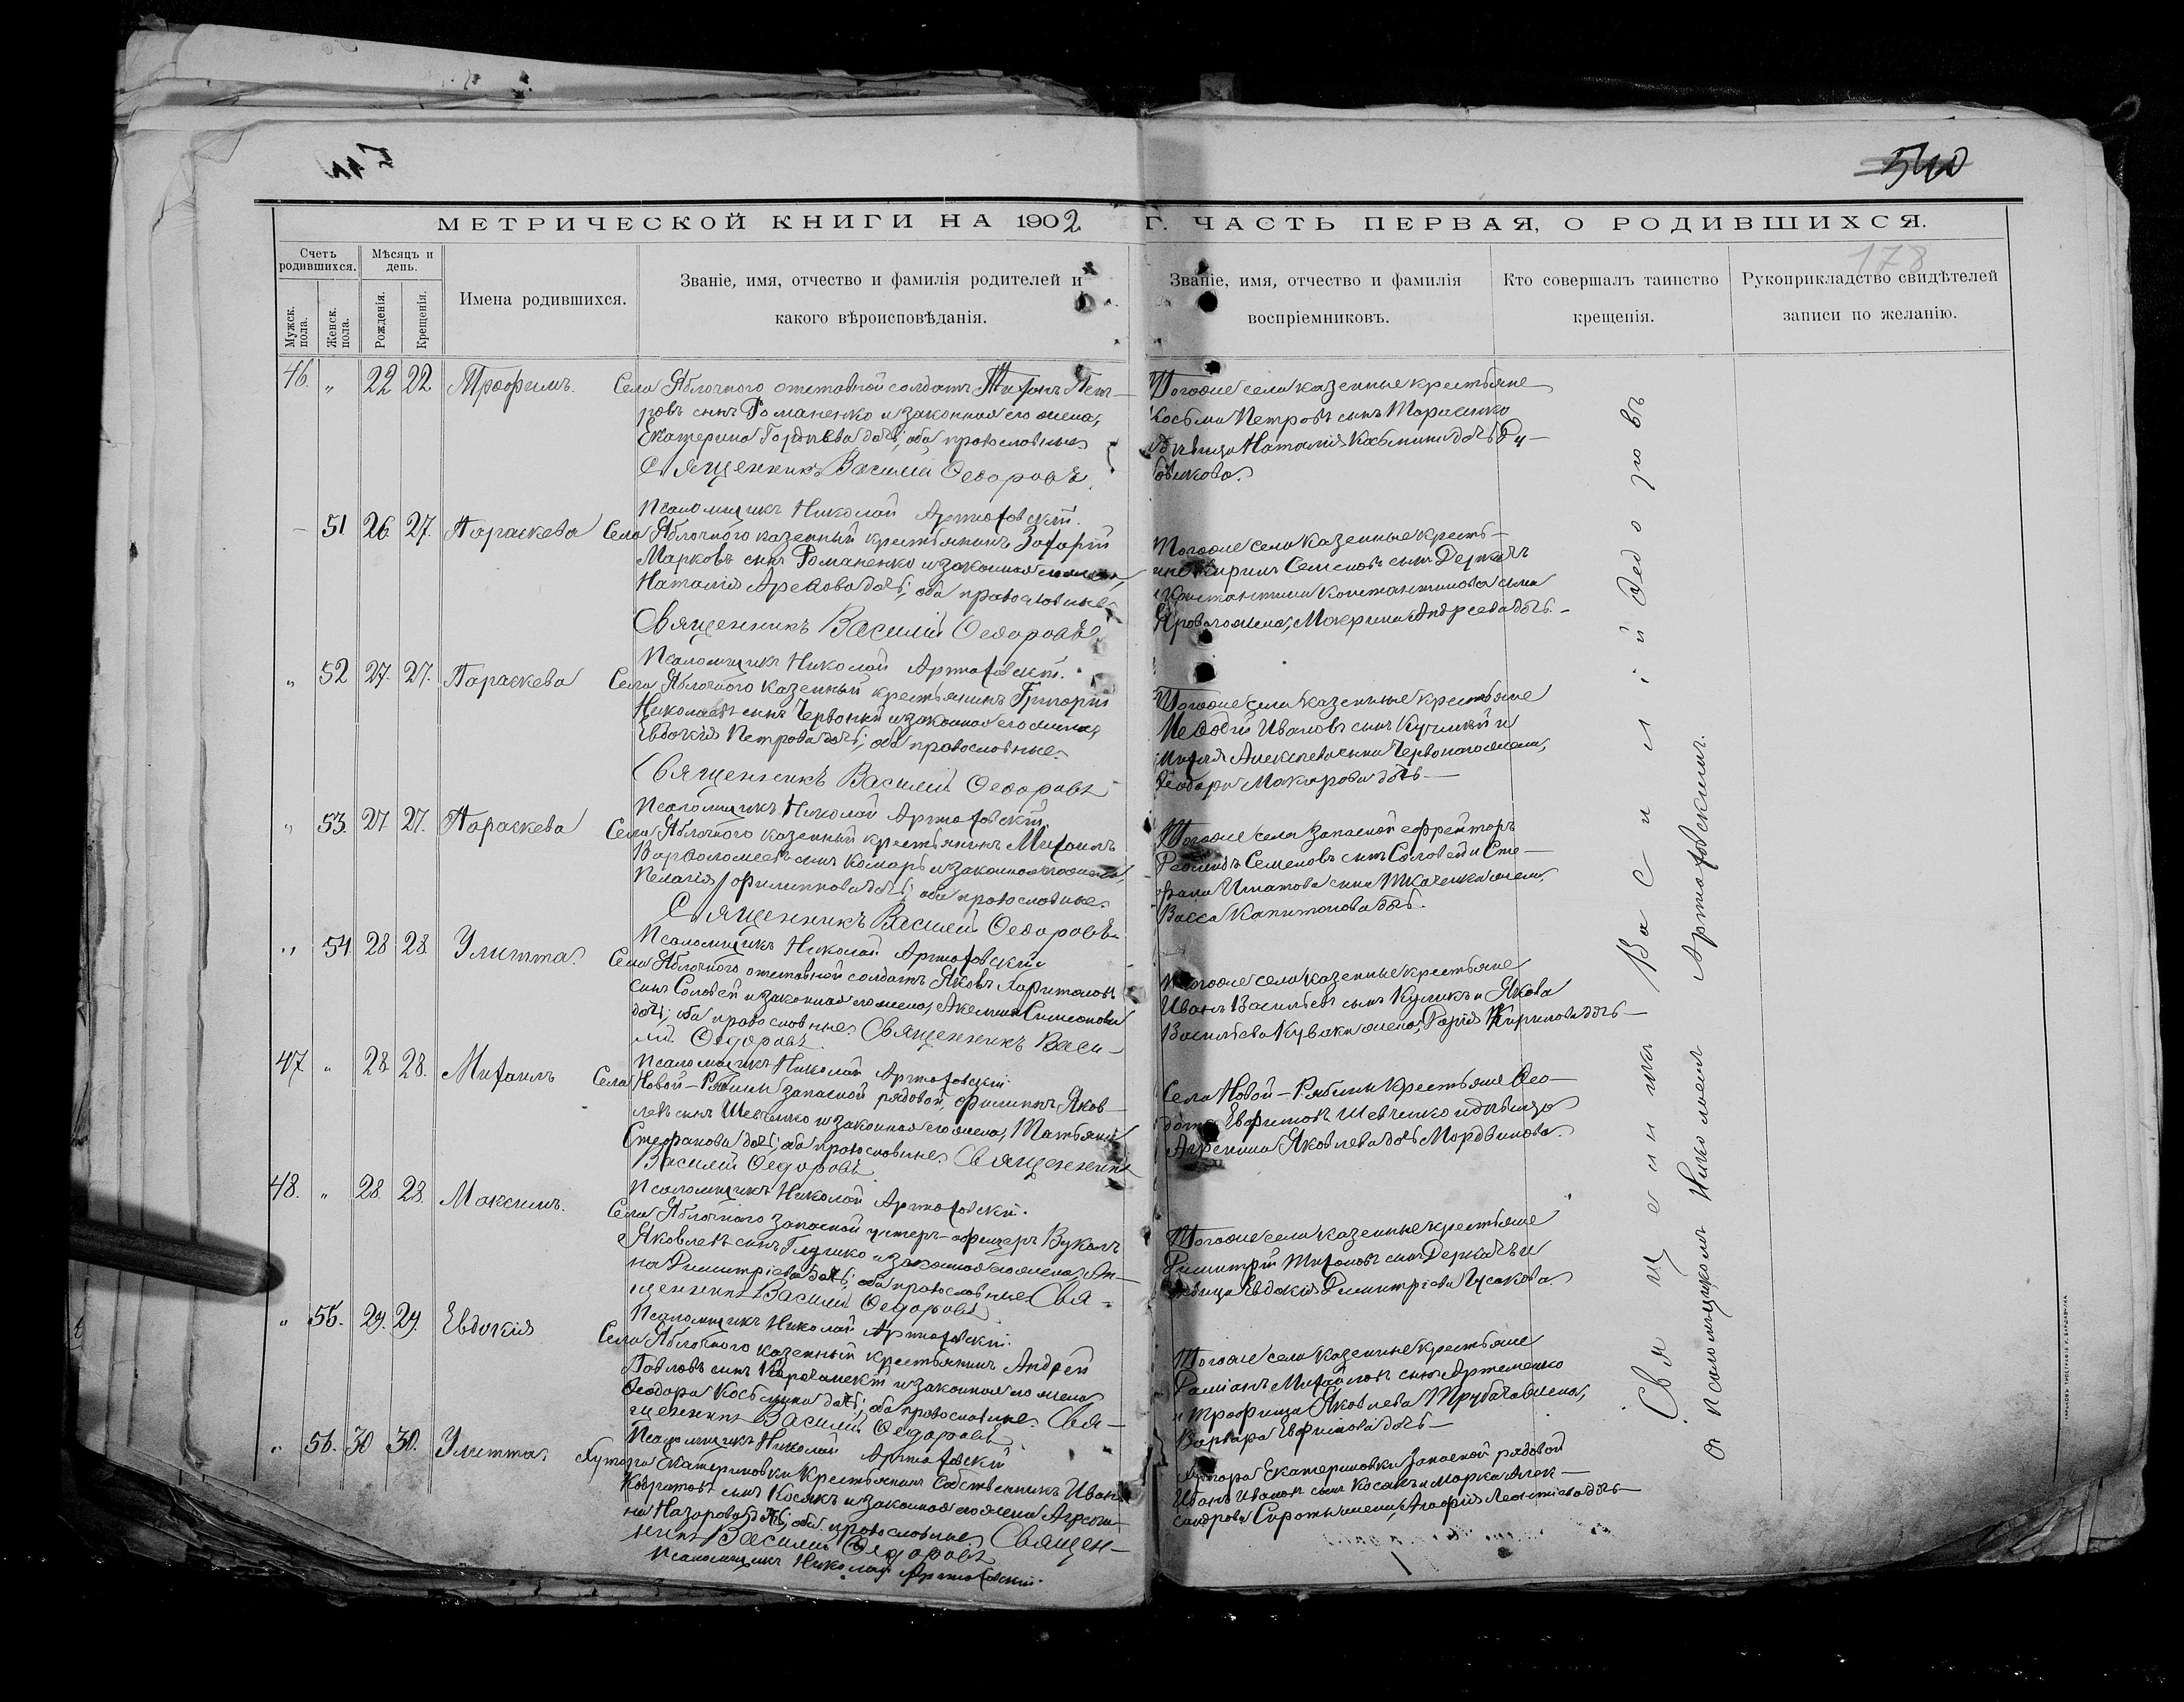 540
178
МЕТРИЧЕСКОЙ КНИГИ НА 1902 Г. ЧАСТЬ ПЕРВАЯ, О РОДИВШИХСЯ.
Счетъ родившихся.
Мѣсяцъ и день.
Мужск. пола.
Женск. пола.
Рожденія.
Крещенія.
Имена родившихся.
Званіе, имя, отчество и фамилія родителей и
какого вѣроисповѣданія.
Званіе, имя, отчество и фамилія
воспріемниковъ.
Кто совершалъ таинство
крещенія.
Рукоприкладство свидѣтелей
записи по желанію.
46. " 22 22 Трофимъ.
Села Яблочного отставной солдатъ Тихонъ Пет-
ровъ сынъ Романенко и законная его жена,
Екатерина Гордѣева дочь; оба православные
Священникъ Василій Ѳедоровъ
Псаломщикъ Николай Артюховскій.
Тогоже села казенные крестьяне
Косьма Петровъ сынъ Тарасенко
дѣвица Наталія Косьмина дочь
51 26 27. Параскева
Села Яблочного казенный крестьянинъ Захарій
Марковъ сынъ Романенко и законная его жена,
Наталія дочь; оба православные
Священникъ Василій Ѳедоровъ
Псаломщикъ Николай Артюховскій.
Тогоже села казенные кресть-
яне Кирилъ Семеновъ сынъ Деркачъ
и Константина Константинова сына
жена, Макрина Андреева дочь.
" 52 27. 27. Параскева
Села Яблочного казенный крестьянинъ Григорій
Николаевъ сынъ Червоный и законная его жена
Евдокія Петрова дочь; оба православные.
Священникъ Василій Ѳедоровъ
Псаломщикъ Николай Артюховскій.
Тогоже села казенные крестьяне
Меѳодій Ивановъ сынъ и
Алексѣева сына Червоного жена,
Ѳеодора Макарова дочь
" 53. 27 27. Параскева
Села Яблочного казенный крестьянинъ Михаилъ
Варѳоломеевъ сынъ Комаръ и законная его жена,
Пелагія Филиппова дочь; оба православные.
Священникъ Василій Ѳедоровъ
Псаломщикъ Николай Артюховскій
Тогоже села запасной ефрейторъ
Семеновъ сынъ Соловей и Сте-
фана Игнатова сына Ткаченка жена,
Васса Капитонова дочь.
" 54 28 28. Улитта.
Села Яблочного отставной солдатъ Яковъ Харитоновъ
сынъ Соловей и законная его жена, Акелина Симеонова
дочь; оба православные. Священникъ Васи-
лій Ѳедоровъ.
Псаломщикъ Николай Артюховскій.
Тогоже села казенные крестьяне
Иванъ Васильевъ сынъ Куликъ и Якова
Васильева жена, Кирилова дочь
47 " 28 28. Михаилъ
Села Новой-Рябины запасной рядовой, Филиппъ Яков-
левъ сынъ Шевченко и законная его жена, Татьяна
Стефанова дочь; оба православные. Священникъ
Василій Ѳедоровъ.
Псаломщикъ Николай Артюховскій.
Села Новой-Рябины крестьяне Ѳео-
дотъ Евфимовъ Шевченко и дѣвица
Агрепина Яковлева дочь Мордвинова.
48. " 28. 28. Максимъ.
Села Яблочного запасной унтеръ-офицеръ Вуколъ
Яковлевъ сынъ и законная его жена, Ан-
на Димитріева дочь; оба православные Свя-
щенникъ Василій Ѳедоровъ
Псаломщикъ Николай Артюховскій.
Тогоже села казенные крестьяне
Димитрій Тихоновъ сынъ Деркачъ и
дѣвица Евдокія Димитріева Гусакова
" 55. 29. 29. Евдокія
Села Яблочного казенный крестьянинъ Андрей
Павловъ сынъ и законная его жена
Ѳеодора Косьмина дочь; оба православные. Свя-
щенникъ Василій Ѳедоровъ
Псаломщикъ Николай Артюховскій
Тогоже села казенные крестьяне
Даміанъ Михайловъ сынъ Артеменко
и Яковлева жена,
Варвара Евфимова дочь
" 56. 30 30. Улитта.
Хутора Екатериновки крестьянинъ собственникъ Иванъ
Кондратовъ сынъ Косякъ и законная его жена Агрепи-
на Назарова дочь; оба православные Священ-
никъ Василій Ѳедоровъ
Псаломщикъ Николай Артюховскій.
Хутора Екатериновки запасной рядовой
Иванъ Ивановъ сынъ Косякъ и Марка Алек-
сандрова Сироты жена, Агафія Леонтіева дочь
Священникъ Василій Ѳедоровъ
съ псаломщикомъ Николаемъ Артюховскимъ.